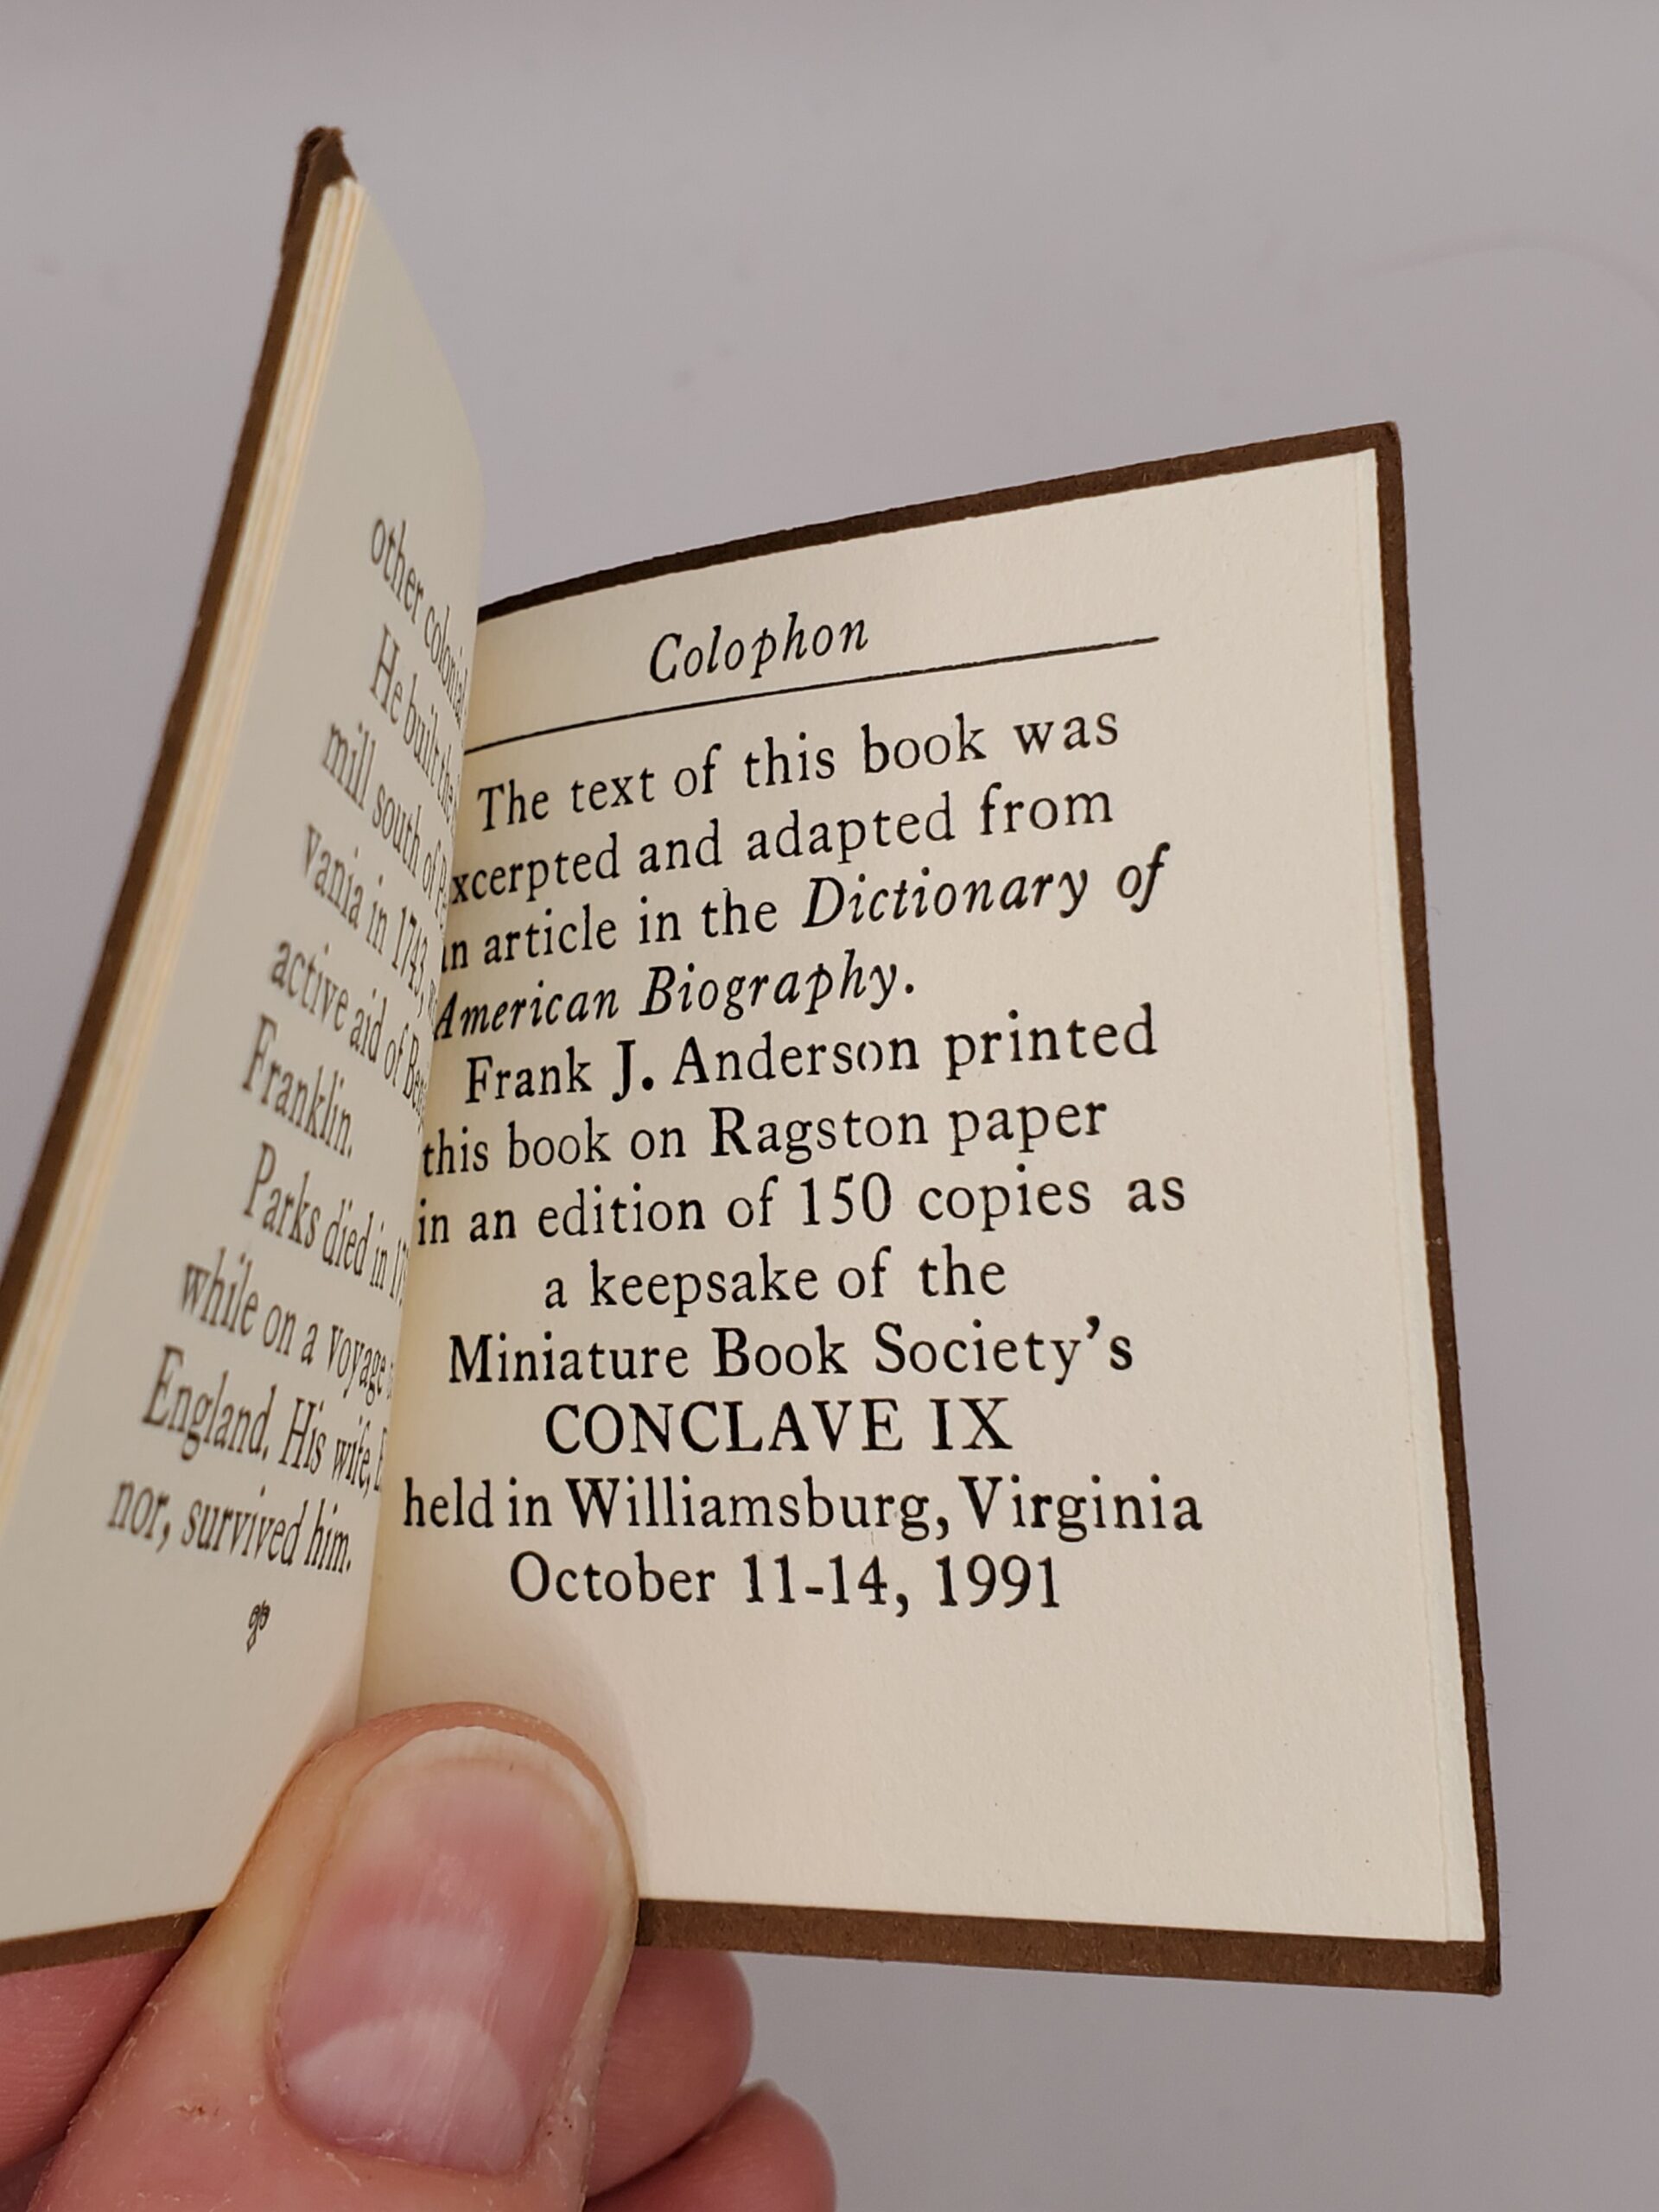 other colonial
He built the
mill south of
vania in 1743,
active aid of
Franklin.
Parks died in
while on a voyage
England. His wife,
nor, survived him.
Colophon
The text of this book was
xcerpted and adapted from
n article in the Dictionary of
American Biography.
Frank J. Anderson printed
this book on Ragston paper
in an edition of 150 copies as
a keepsake of the
Miniature Book Society's
CONCLAVE IX
held in Williamsburg, Virginia
October 11-14, 1991